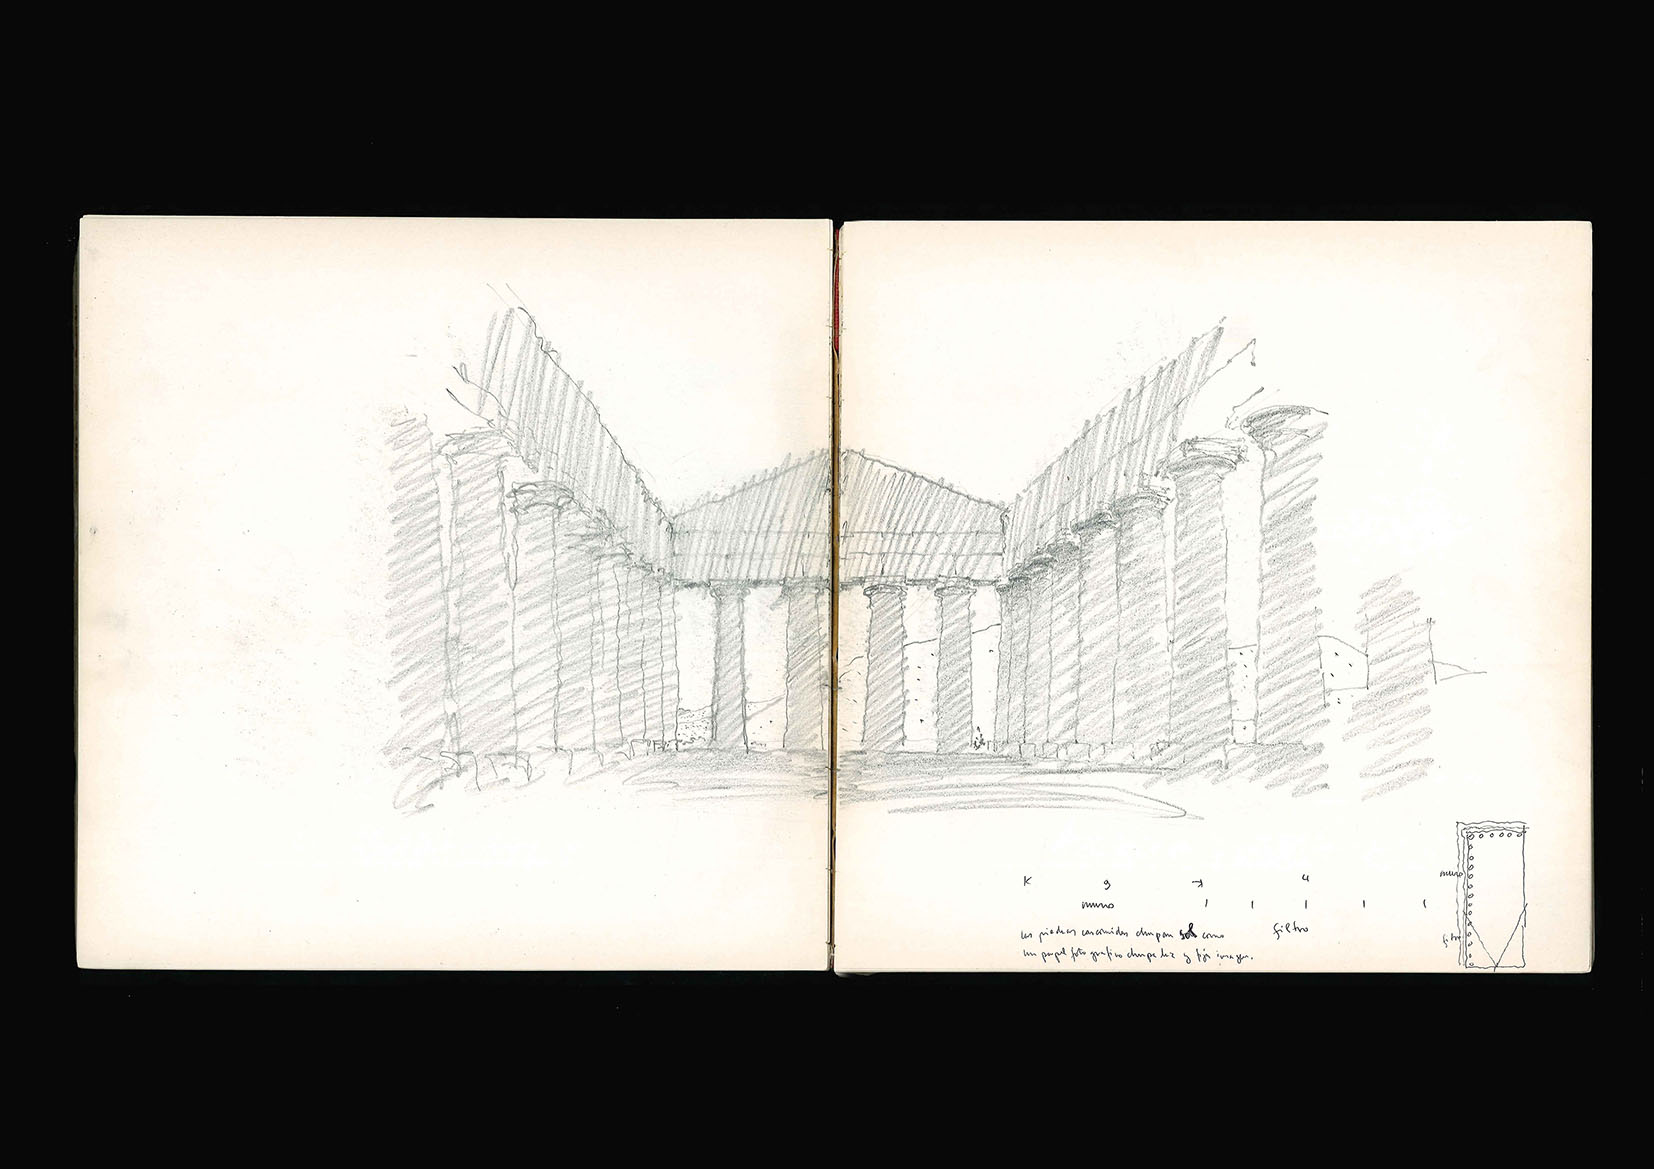 muro
filtro
las piedras carcomidas chupan sol como
un papel fotográfico chupa luz y fija imagen.
muro
filtro